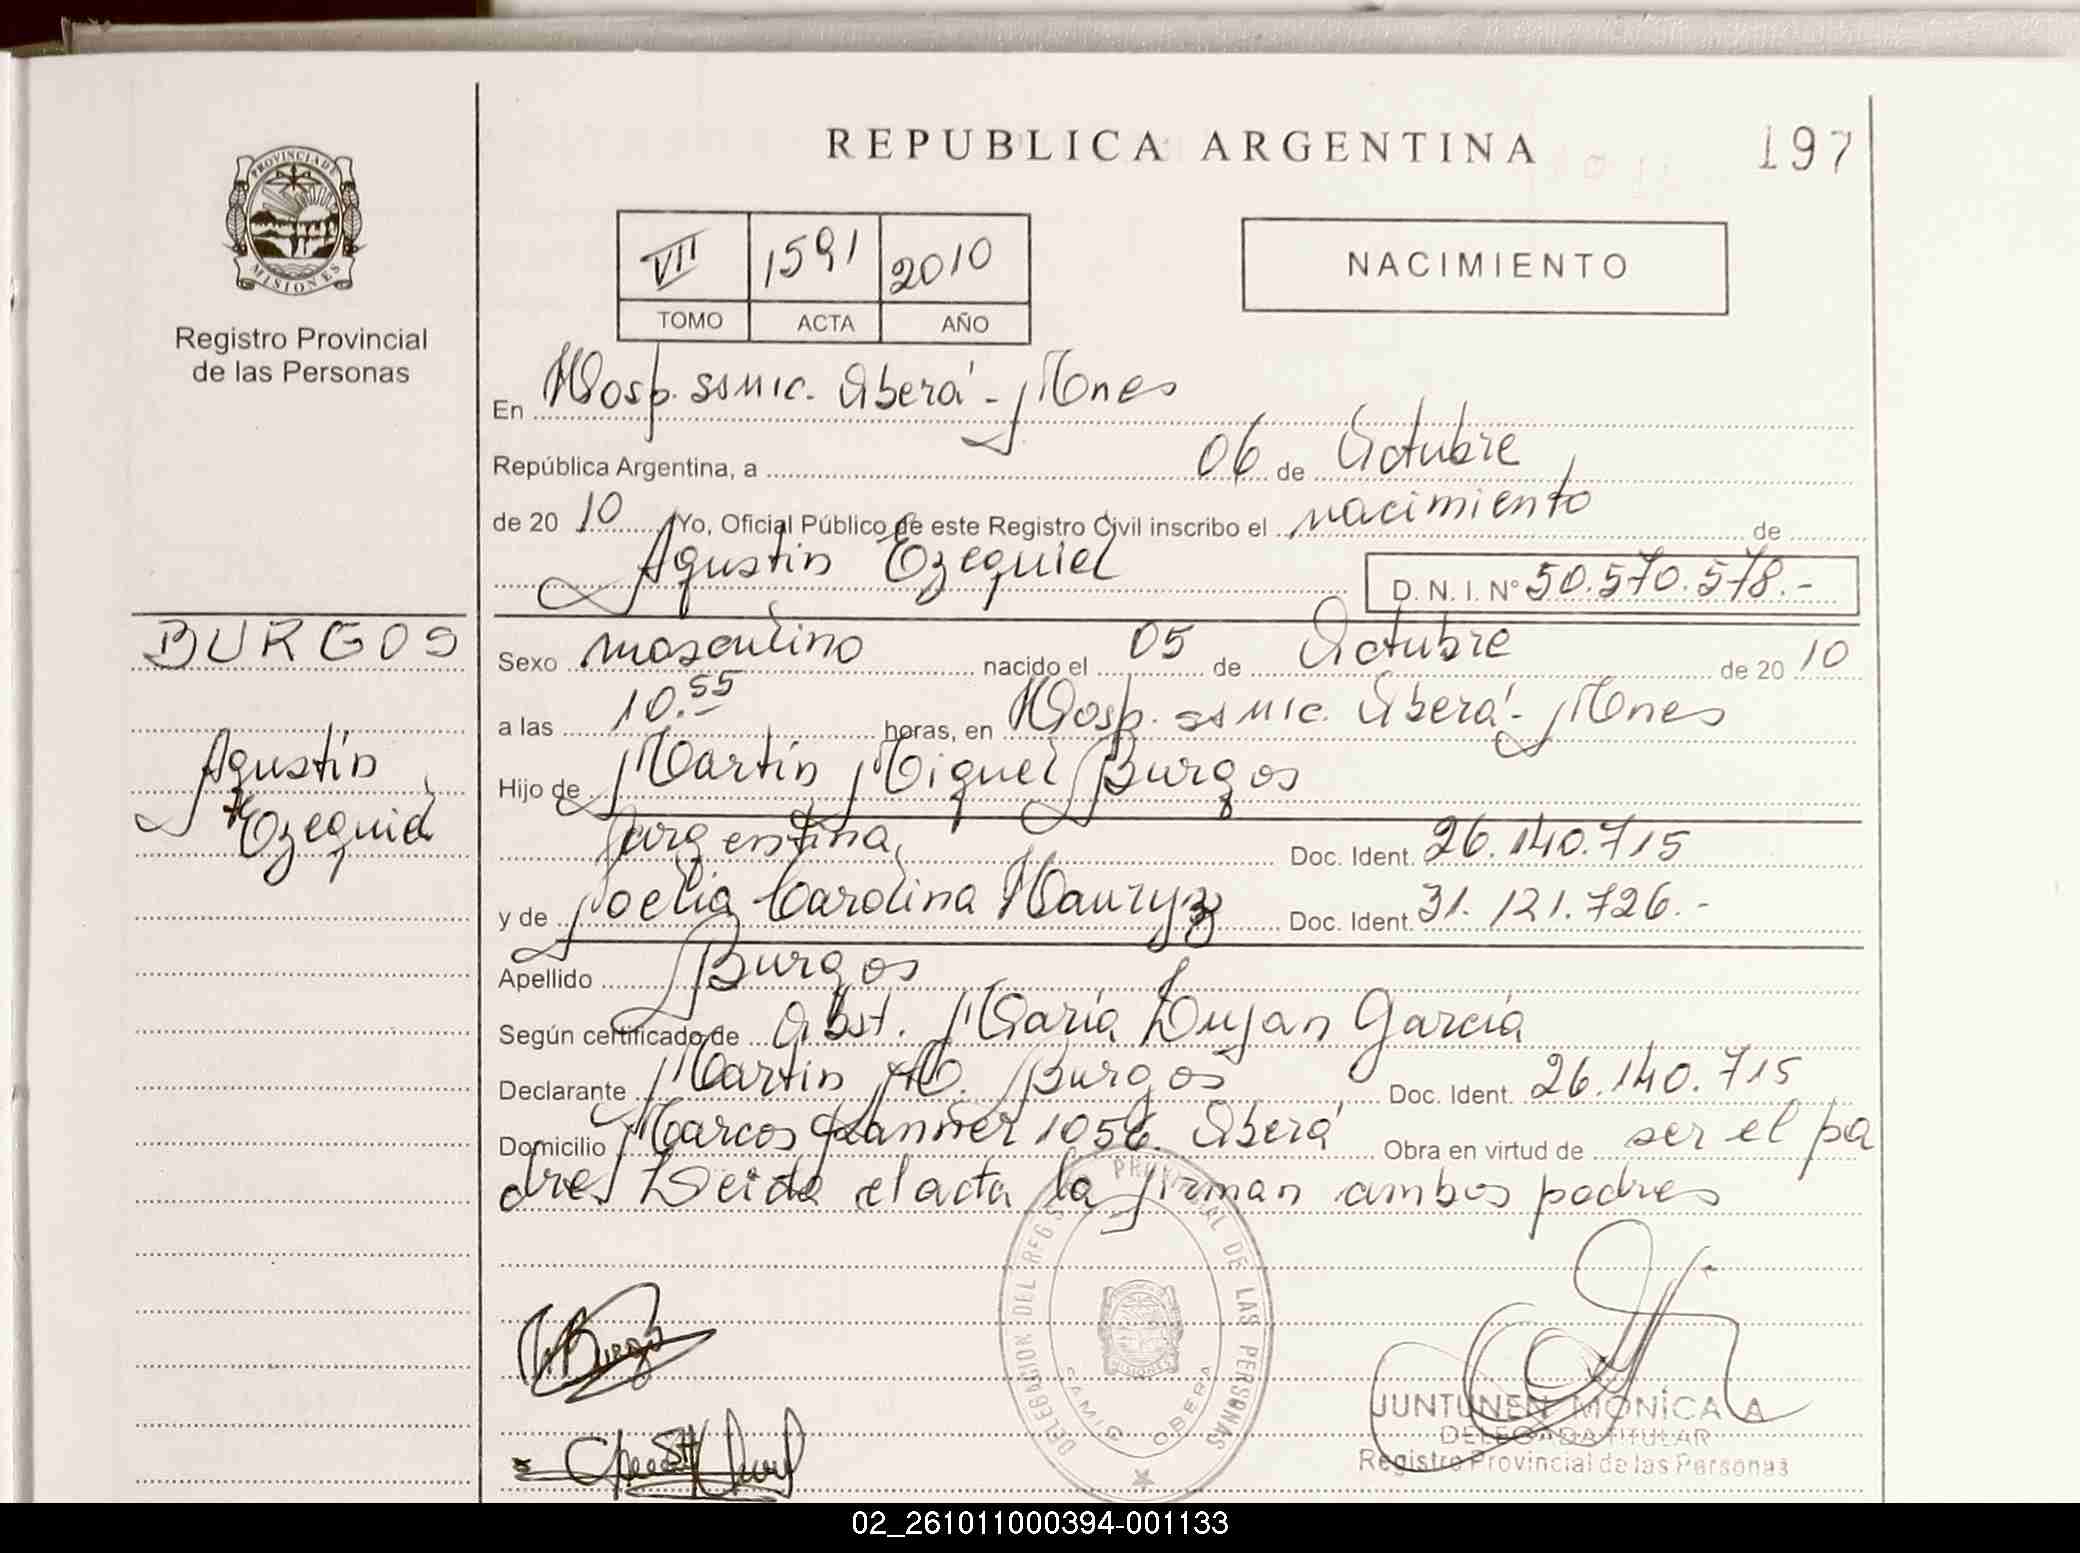 REPUBLICA ARGENTINA
197
PROVINCIA DE
MISIONES
Registro Provincial
de las Personas
VII 1591 2010
TOMO ACTA AÑO
NACIMIENTO
En Hosp. SSMIC. Oberá - Mnes
República Argentina, a 06 de Octubre
de 20 10 Yo, Oficial Público de este Registro Civil inscribo el nacimiento de
Agustin Ezequiel
D. N. I. Nº 50.570.578.-
BURGOS
Agustín
Ezequiel
Sexo masculino nacido el 05 de Octubre de 20 10
a las 10.55 horas, en Hosp. SSMIC. Oberá - Mnes
Hijo de Martín Miguel Burgos
argentina, Doc. Ident. 26.140.715
y de Noelia Carolina Doc. Ident. 31.121.726.-
Apellido Burgos
Según certificado de Obst. María Lujan García
Declarante Martin M. Burgos Doc. Ident. 26.140.715
Domicilio Marcos 1056 Oberá Obra en virtud de ser el pa
dre. Leida el acta la firman ambos padres
Burgos
DELEGACION DEL REGISTRO PROVINCIAL DE LAS PERSONAS
MISIONES
OBERA
JUNTUNEN MONÍCA A
DELEGADA TITULAR
Registro Provincial de las Personas
02_261011000394-001133